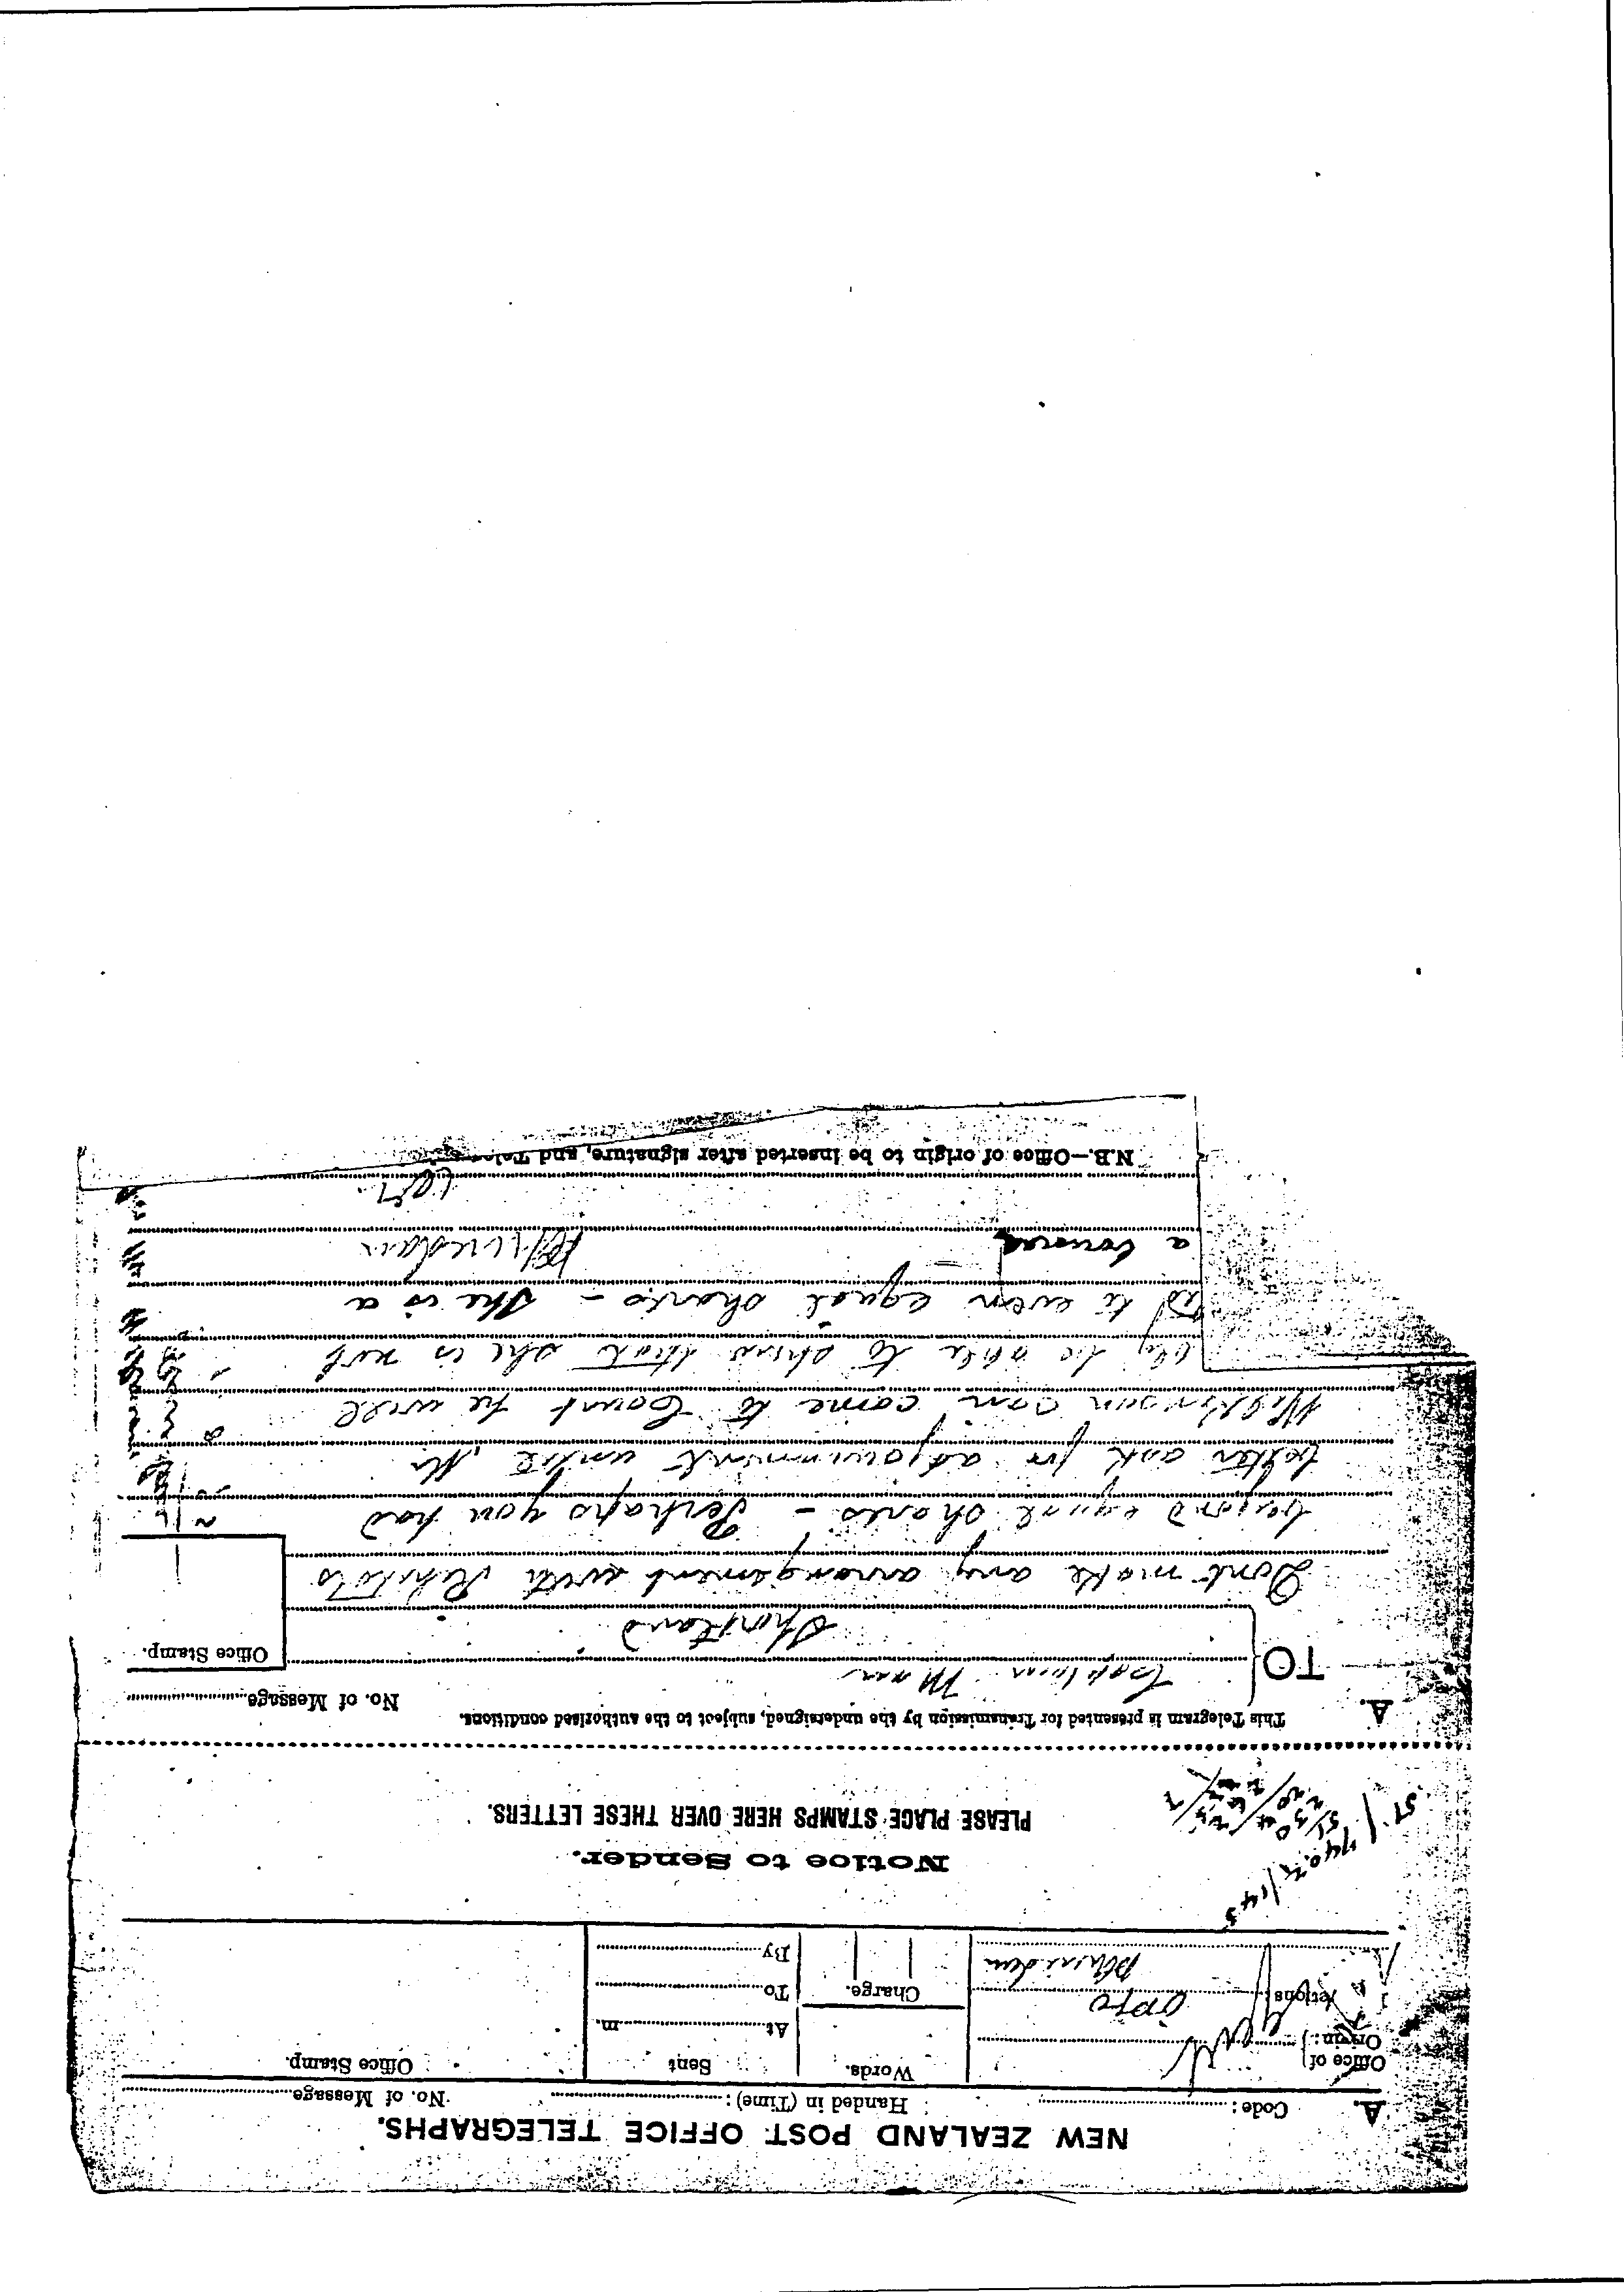 NEW ZEALAND POST OFFICE TELEGRAPHS.
A. Code: Handed in (Time): No. of Message
Office of Origin: Words. Sent Office Stamp.
At m.
Charge. To
By
Notice to Sender.
PLEASE PLACE STAMPS HERE OVER THESE LETTERS.
A. This Telegram is presented for Transmission by the undersigned, subject to the authorised conditions. No. of Message
TO Captain Mair Office Stamp.
Shortland
Dont make any arrangement with
beyond equal shares - Perhaps you had
better ask for adjournment until Mr
can come to Court he will
be able to show that she is not
to even equal shares - She is a
a
N.B.—Office of origin to be inserted after signature, and